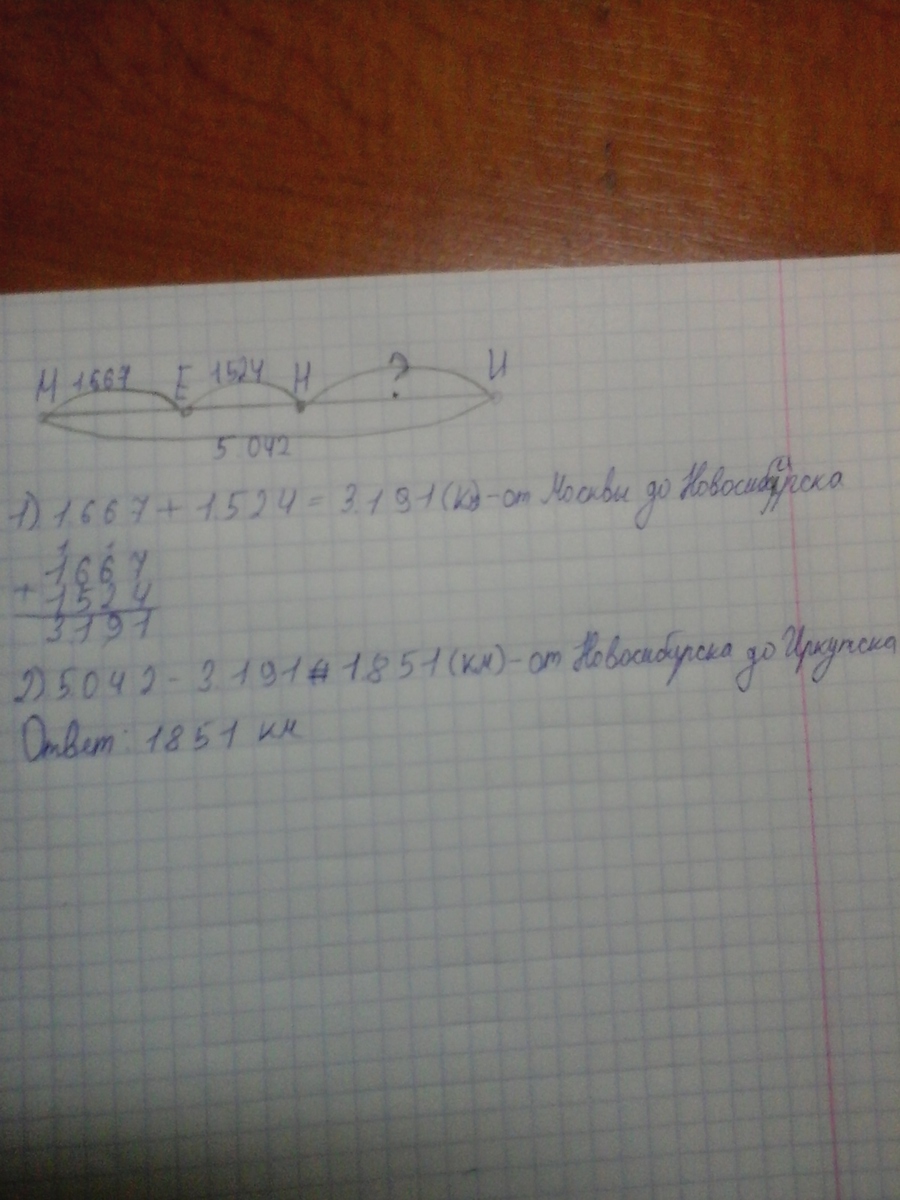 М 1667 Е 1524 Н ? И
5042
1) 1667 + 1524 = 3191 (км) - от Москвы до Новосибирска
1 1
1667
+ 1524
3191
2) 5042 - 3191 = 1851 (км) - от Новосибирска до Иркутска
Ответ: 1851 км